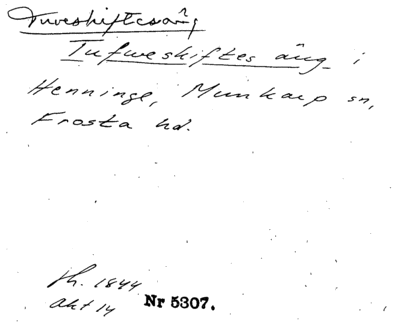 Tuveskiftesäng
Tufweskiftes äng i
Henninge, Munkarp sn,
Frosta hd.
sh. 1844
akt 14 Nr 5307.